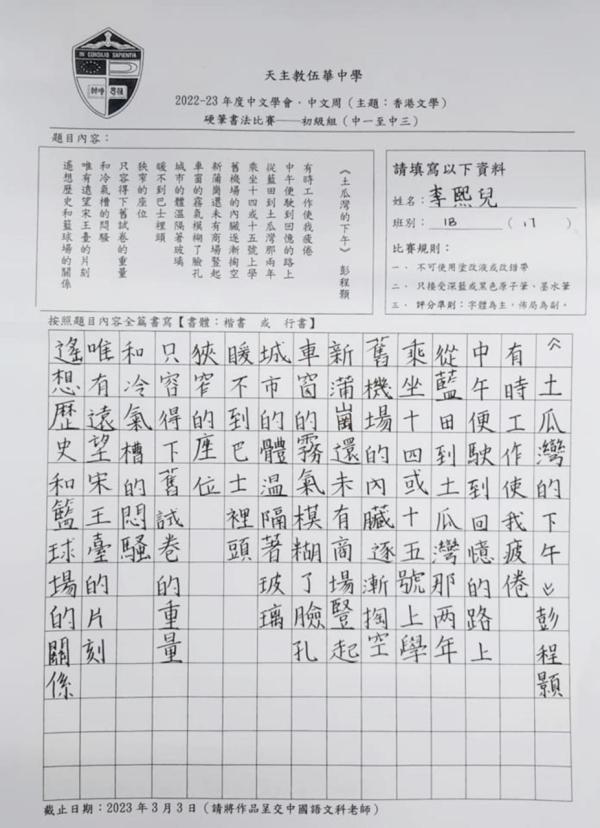 IN CONSILIO SAPIENTIA
天主教伍華中學
2022-23 年度中文學會．中文周（主題：香港文學）
硬筆書法比賽——初級組（中一至中三）
題目內容：
《土瓜灣的下午》 彭程顥
有時工作使我疲倦
中午便駛到回憶的路上
從藍田到土瓜灣那兩年
乘坐十四或十五號上學
舊機場的內臟逐漸掏空
新蒲崗還未有商場豎起
車窗的霧氣模糊了臉孔
城市的體溫隔著玻璃
暖不到巴士裡頭
狹窄的座位
只容得下舊試卷的重量
和冷氣槽的悶騷
唯有遠望宋王臺的片刻
遙想歷史和籃球場的關係
請填寫以下資料
姓名：李熙兒
班別：1B （17）
比賽規則：
一．不可使用塗改液或改錯帶
二．只接受深藍或黑色原子筆、墨水筆
三．評分準則：字體為主，佈局為副。
按照題目內容全篇書寫【書體：楷書 或 行書】
《土瓜灣的下午》彭程顥
有時工作使我疲倦
中午便駛到回憶的路上
從藍田到土瓜灣那兩年
乘坐十四或十五號上學
舊機場的內臟逐漸掏空
新蒲崗還未有商場豎起
車窗的霧氣模糊了臉孔
城市的體溫隔著玻璃
暖不到巴士裡頭
狹窄的座位
只容得下舊試卷的重量
和冷氣槽的悶騷
唯有遠望宋王臺的片刻
遙想歷史和籃球場的關係
截止日期：2023 年 3 月 3 日（請將作品呈交中國語文科老師）